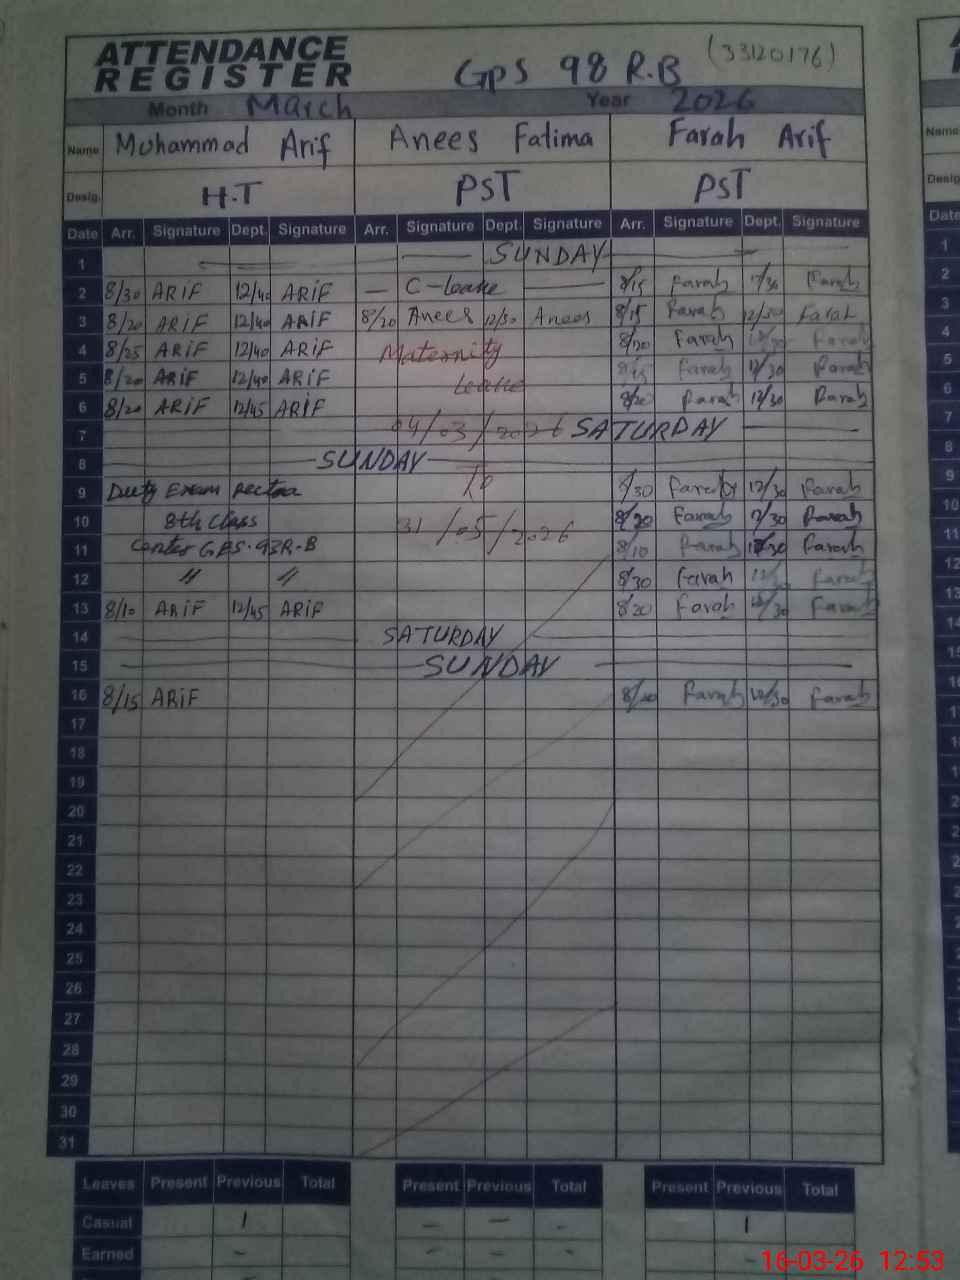 ATTENDANCE REGISTER GPS 98 R.B (33120176)
Month March Year 2026
Name Muhammad Arif Anees Fatima Farah Arif
Desig. H.T PST PST
Date Arr. Signature Dept. Signature Arr. Signature Dept. Signature Arr. Signature Dept. Signature
1 SUNDAY
2 8/30 ARIF 12/40 ARIF — C-leave — 8/15 Farah 12/30 Farah
3 8/20 ARIF 12/40 ARIF 8/20 Anees 12/30 Anees 8/15 Farah 12/30 Farah
4 8/25 ARIF 12/40 ARIF Maternity 8/20 Farah 12/30 Farah
5 8/20 ARIF 12/40 ARIF Leave 8/15 Farah 12/30 Farah
6 8/20 ARIF 12/45 ARIF 8/20 Farah 12/30 Farah
7 04/03/2026 SATURDAY
8 SUNDAY
9 Duty Exam To 8/30 Farah 12/30 Farah
10 8th Class 31/05/2026 8/20 Farah 12/30 Farah
11 Center GPS 93R-B 8/10 Farah 12/30 Farah
12 " " 8/30 Farah 12/30 Farah
13 8/10 ARIF 12/45 ARIF 8/20 Farah 12/30 Farah
14 SATURDAY
15 SUNDAY
16 8/15 ARIF 8/20 Farah 12/30 Farah
17
18
19
20
21
22
23
24
25
26
27
28
29
30
31
Leaves Present Previous Total Present Previous Total Present Previous Total
Casual 1 – – - 1
Earned - - - - -
16-03-26 12:53